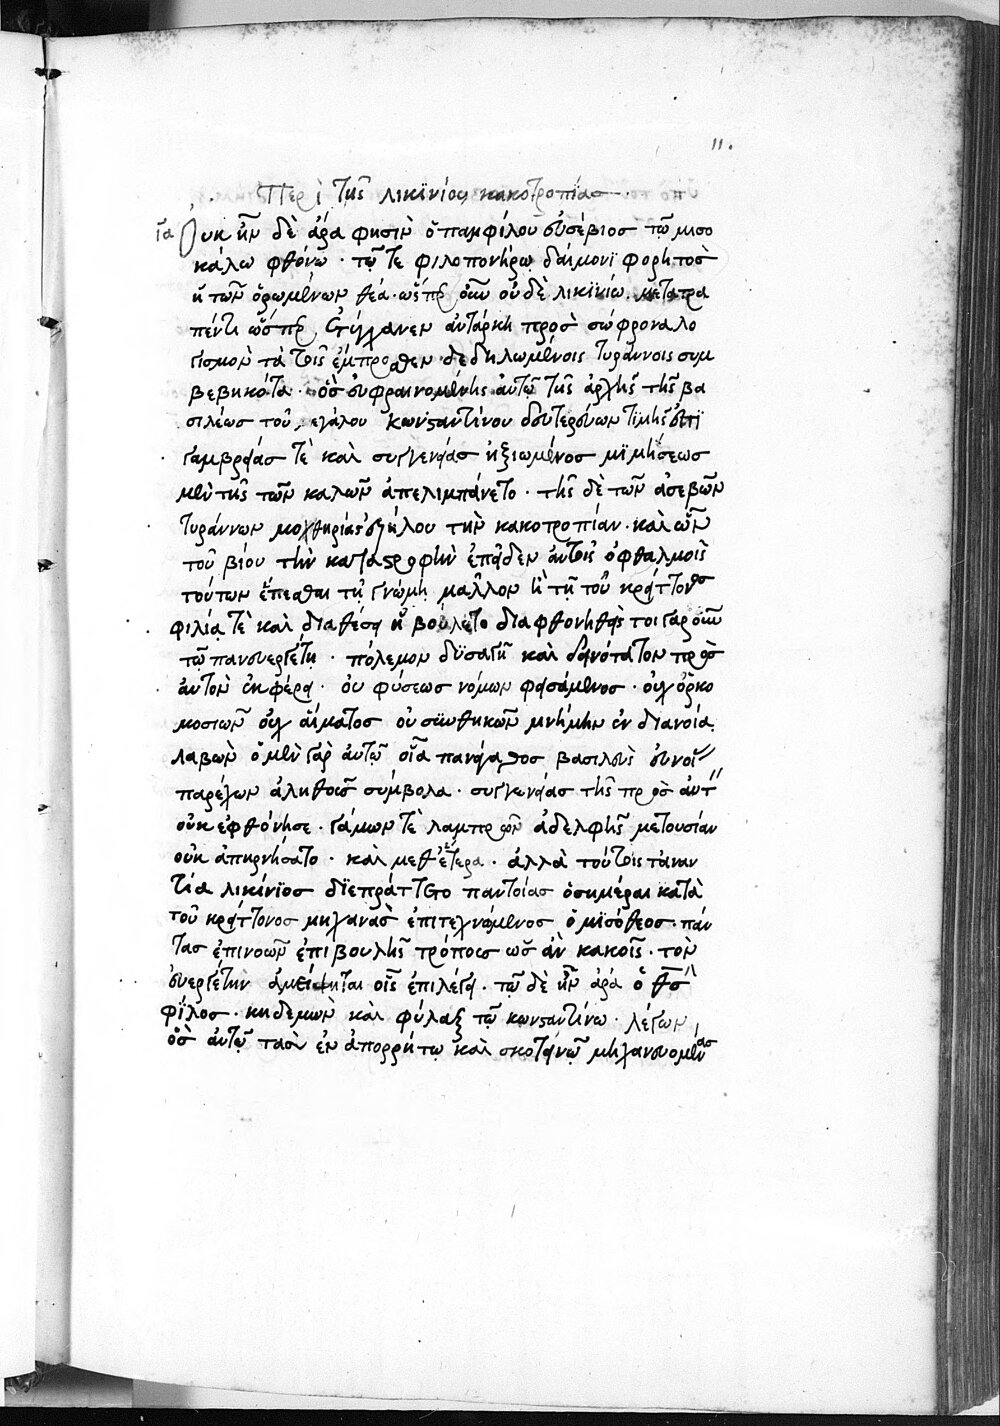 11.
Περὶ τῆς λικϊνίου κακοτροπίας
ια Οὐκ ἦν δὲ ἄρα φησὶν ὁ παμφίλου εὐσέβιος τῶ μισο
κάλω φθόνω · τῶ τε φιλοπονήρω δαίμονι φορητὸς
ἡ τῶν ὁρωμένων θέα · ὥσπερ οὖν οὐδὲ λικινίω μετατρα
πέντι ὥσπερ ἐτύγχανεν αὐτάρκη πρὸς σώφρονα λο
γισμὸν τὰ τοῖς ἔμπροσθεν δεδηλωμένοις τυράννοις συμ
βεβηκότα · ὃς εὐφραινομένης αὐτῶ τῆς ἀρχῆς τῆς βα
σιλέως τοῦ μεγάλου κωνσαντίνου δευτερεύων τϊμῆς ἐπϊ
γαμβρείας τὲ καὶ συγγενείας ἠξιωμένος μϊμήσεως
μὲν τῆς τῶν καλῶν ἀπελιμπάνετο · τῆς δὲ τῶν ἀσεβῶν
τυράννων μοχθηρίας ἐζήλου τὴν κακοτροπίαν · καὶ ὧν
τοῦ βίου τὴν καταστροφὴν ἐπεῖδεν αὐτοῖς ὀφθαλμοῖς
τούτων ἕπεσθαι τῆ γνώμη μᾶλλον ἢ τῆ τοῦ κρείττονος
φιλία τὲ καὶ διαθέσει ἠβούλετο διαφθονηθεὶς τοιγαροῦν
τῶ πανευεργέτη · πόλεμον δϋσαγῆ καὶ δεινότατον πρὸς
αὐτὸν ἐκφέρει · οὐ φύσεως νόμων φεισάμενος · οὐχ ὁρκο
μοσιῶν οὐχ αἵματος οὐ συνθηκῶν μνήμην ἐν διανοία
λαβὼν ὁ μὲν γὰρ αὐτῶ οἷα πανάγαθος βασιλεὺς εὐνοί
παρέχων ἀληθοῦς σύμβολα · συγγενείας τῆς πρὸς αὐτ
οὐκ ἐφθόνησε · γάμων τὲ λαμπρῶν ἀδελφῆς μετουσίαν
οὐκ ἀπηρνήσατο · καὶ μεθ᾽ ἕτερα · ἀλλὰ τούτοις τἀναν
τία λικίνϊος δϊεπράττετο παντοίας ὁσημέραι κατὰ
τοῦ κρείττονος μηχανὰς ἐπιτεχνώμενος ὁ μισόθεος · πάν
τας ἐπινοῶν ἐπιβουλῆς τρόπους ὡς ἂν κακοῖς · τὸν
εὐεργέτην ἀμείψηται οἷς ἐπιλέγει · τῶ δὲ ἦν ἄρα ὁ θς
φίλος · κηδεμὼν καὶ φύλαξ τῶ κωνσαντίνω · λέγων
ὃς αὐτῶ τὰς ἐν ἀπορρήτω καὶ σκοτεινῶ μηχανευομένας